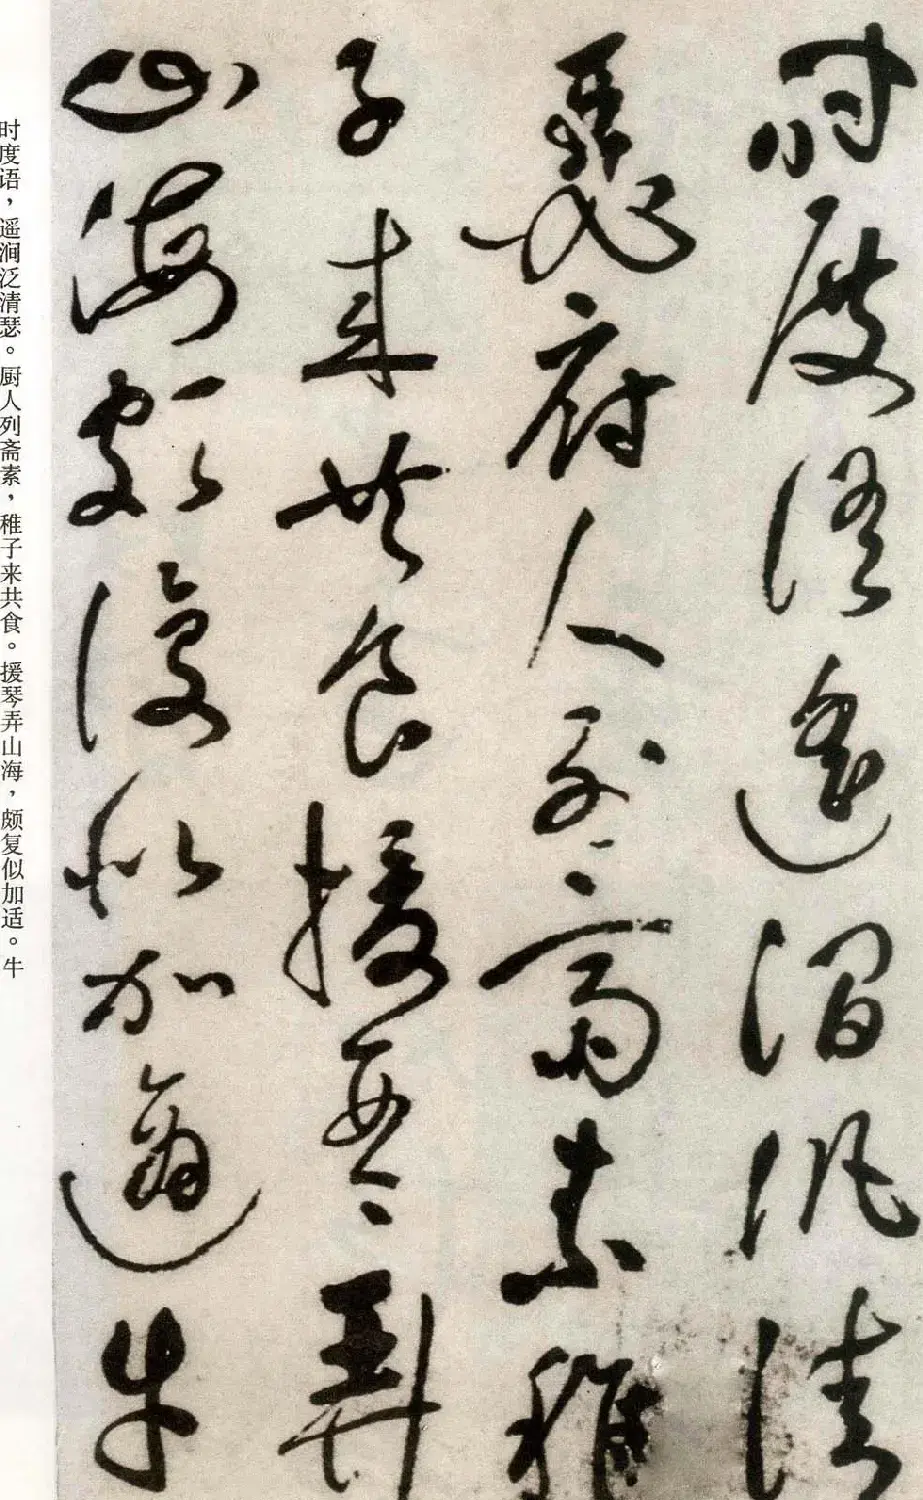 時度語遥澗汎清
瑟厨人列齋素稚
子来共食援琴弄
山海頗復似加適牛
时度语，遥涧泛清瑟。厨人列斋素，稚子来共食。援琴弄山海，颇复似加适。牛